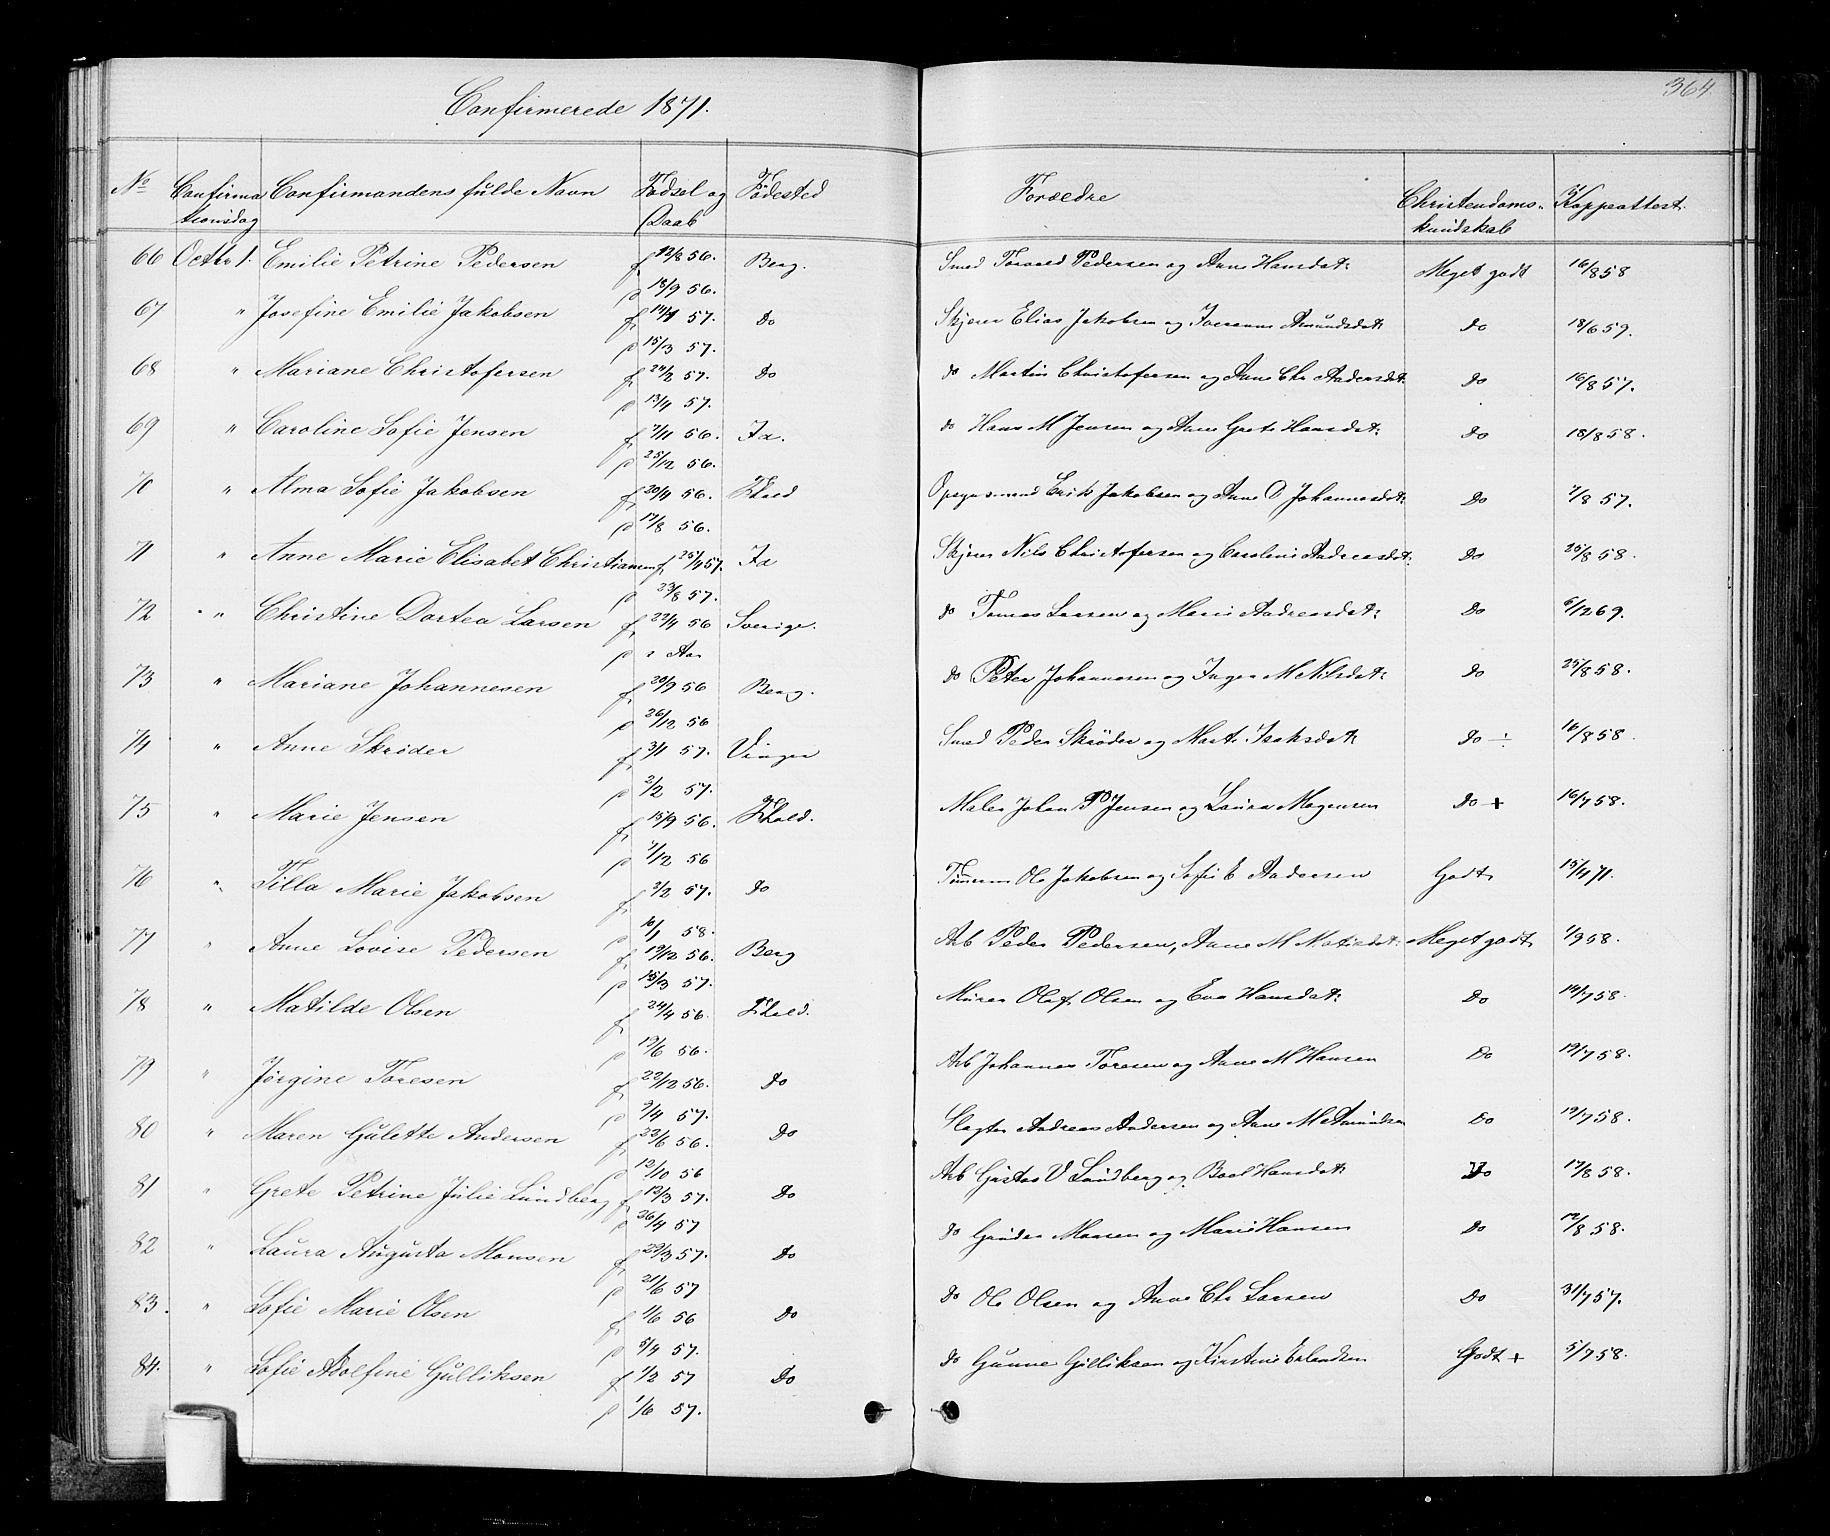 Confirmerede 1871.
364.
No Confirma Confirmandens fulde Navn Fødsel og Fødested Forældre Christendoms- Koppeattest.
tionsdag Daab kundskab
66 Octbr 1. Emilie Petrine Pedersen f 12/8 56. Berg. Smed Pedersen og Anne Hansdat: Meget godt 16/8 58
p 18/9 56.
67 " Josefine Emilie Jakobsen f 14/1 57. Do Skjærer Elias Jakobsen og Amundsdat: Do 18/6 59.
p 15/3 57.
68 " Mariane Christofersen f 24/2 57. Do do Martin Christofersen og Anne Chr Andersdat: Do 16/8 57.
p 13/4 57.
69 " Caroline Sofie Jensen f 7/11 56. Id. do Hans M Jensen og Anne Grete Hansdat: Do 18/8 58.
p 25/12 56.
70 " Alma Sofie Jakobsen f 20/4 56. Fhald Opsynsmand Erik Jakobsen og Anne D Johannesdat: Do 7/8 57.
p 17/8 56.
71 " Anne Marie Elisabet Christiansen f 25/4 57. Id Skjærer Nils Christofersen og Caroline Andreasdat: Do 25/8 58.
p 23/8 57.
72 " Christine Dortea Larsen f 22/4 56 Sverige. do Tomas Larsen og Marie Andreasdat: Do 6/2 69.
p s Aar
73 " Mariane Johannesen f 20/9 56 Berg. do Peter Johannesen og Inger M Nilsdat: Do 25/8 58.
p 26/12 56
74 " Anne Skrøder f 3/1 57. Vinger Smed Peder Skrøder og Mart. Isaksdat: Do ÷ 16/8 58
p 2/2 57.
75 " Marie Jensen f 15/9 56. Fhald. Maler Johan P Jensen og Laura Mogensen Do + 16/7 58.
p 7/12 56
76 " Tilla Marie Jakobsen f 3/2 57. Do Tømerm Ole Jakobsen og Sofie E Andersen Godt 15/4 71.
p 10/1 58.
77 " Anne Lovise Pedersen f 19/12 56. Berg Arb Peder Pedersen, Anne M Meget godt 1/9 58.
p 15/3 57.
78 " Matilde Olsen f 24/4 56. Fhald. Murer Olaf Olsen og Eva Hansdat: Do 14/7 58.
p 19/6 56.
79 " Jørgine Toresen f 22/12 56. Do Arb Johannes Toresen og Anne M Hansen Do 19/7 58.
p 9/4 57.
80 " Maren Gulette Andersen f 23/6 56. Do Slagter Andreas Andersen og Anne M Amundsen Do 19/7 58.
p 12/10 56
81 " Grete Petrine Julie Lundberg f 12/3 57. Do Arb Gustav V Lundberg og Boel Hansdat: Do 17/8 58.
p 26/4 57
82 " Laura Augusta Monsen f 29/3 57. Do do Monsen og Marie Hansen Do 12/8 58.
p 21/6 57
83. " Sofie Marie Olsen f 1/6 56 Do do Ole Olsen og Anne Chr Larsen Do 31/7 57.
p 5/4 57.
84. " Sofie Adolfine Gulliksen f 1/2 57 Do do Gunne Gulliksen og Kirstine Erlandsen Godt + 5/7 58.
p 1/6 57.